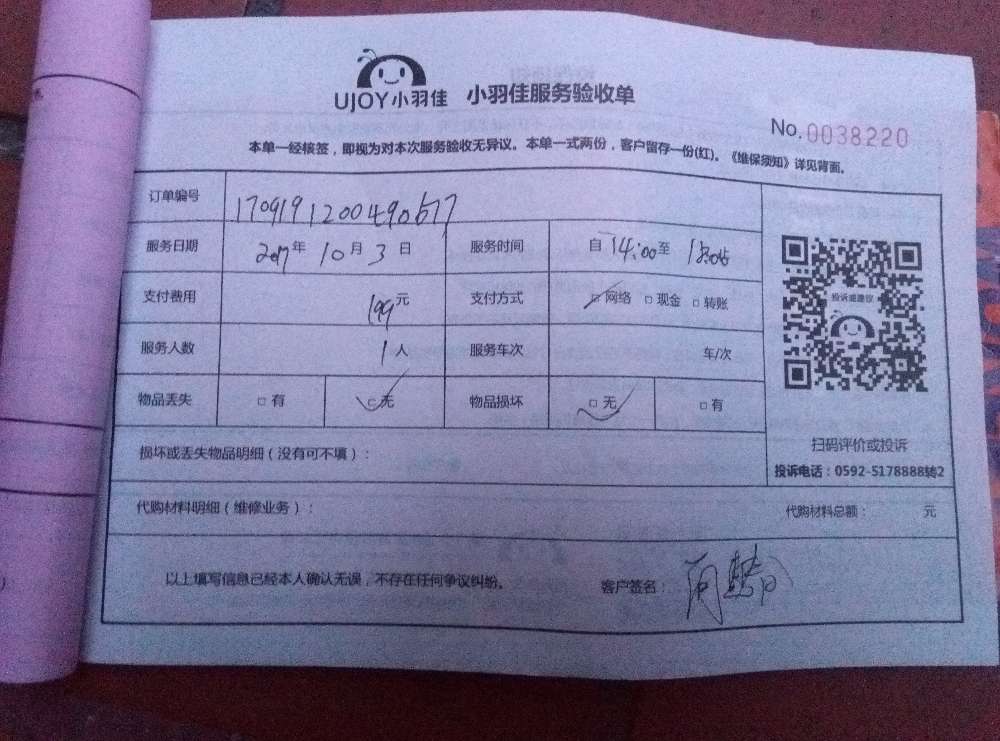 UJOY小羽佳 小羽佳服务验收单
No. 0038220
本单一经核签，即视为对本次服务验收无异议。本单一式两份，客户留存一份(红)。《维保须知》详见背面。
订单编号
服务日期 2017年 10月 3日 服务时间 自 14:00至
支付费用 199元 支付方式 □网络 □现金 □转账
服务人数 1人 服务车次 车/次
物品丢失 □有 □无 物品损坏 □无 □有
投诉或建议
扫码评价或投诉
投诉电话：0592-5178888转2
损坏或丢失物品明细（没有可不填）：
代购材料明细（维修业务）： 代购材料总额： 元
以上填写信息已经本人确认无误，不存在任何争议纠纷。 客户签名：